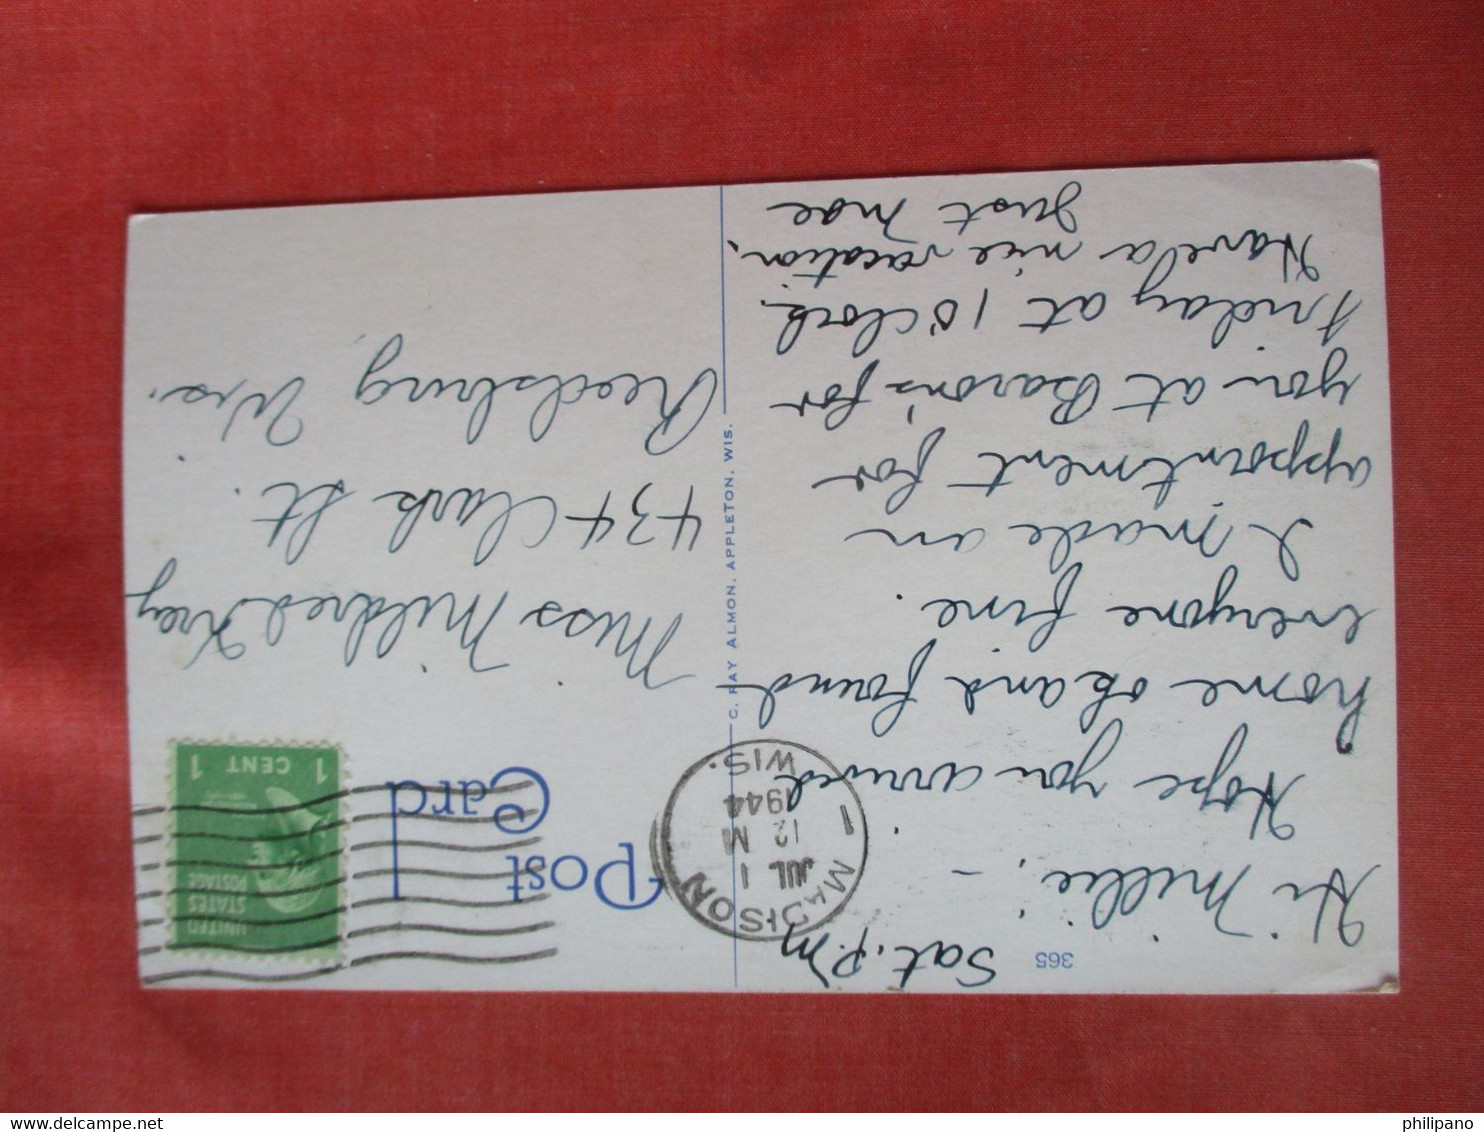 365
Sat. P.M
Hi Millie, -
Hope you arrived
home ok and found
everyone fine.
I made an
appointment for
you at Baron's for
Friday at 1 o'clock.
Have a nice vacation,
Just Mae
C. RAY ALMON, APPLETON, WIS.
Post
Card
MADISON
1
JUL 1
12 M
1944
WIS.
UNITED
STATES
POSTAGE
1 CENT 1
Miss Mildred Krey
434 Clark St.
Reedsburg Wis.
philipano